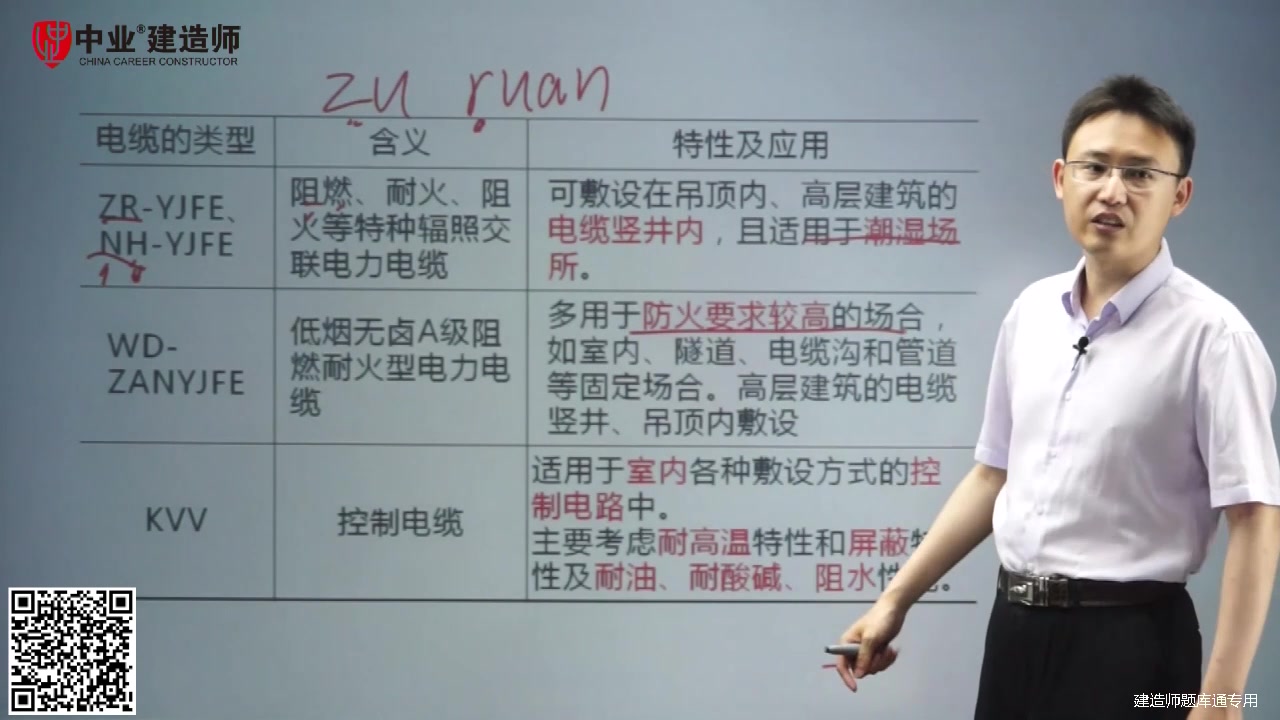 中业®建造师
CHINA CAREER CONSTRUCTOR
zu ruan
电缆的类型
含义
特性及应用
ZR-YJFE、
NH-YJFE
阻燃、耐火、阻
火等特种辐照交
联电力电缆
可敷设在吊顶内、高层建筑的
电缆竖井内，且适用于潮湿场
所。
WD-
ZANYJFE
低烟无卤A级阻
燃耐火型电力电
缆
多用于防火要求较高的场合，
如室内、隧道、电缆沟和管道
等固定场合。高层建筑的电缆
竖井、吊顶内敷设
KVV
控制电缆
适用于室内各种敷设方式的控
制电路中。
主要考虑耐高温特性和屏蔽特
性及耐油、耐酸碱、阻水性。
建造师题库通专用